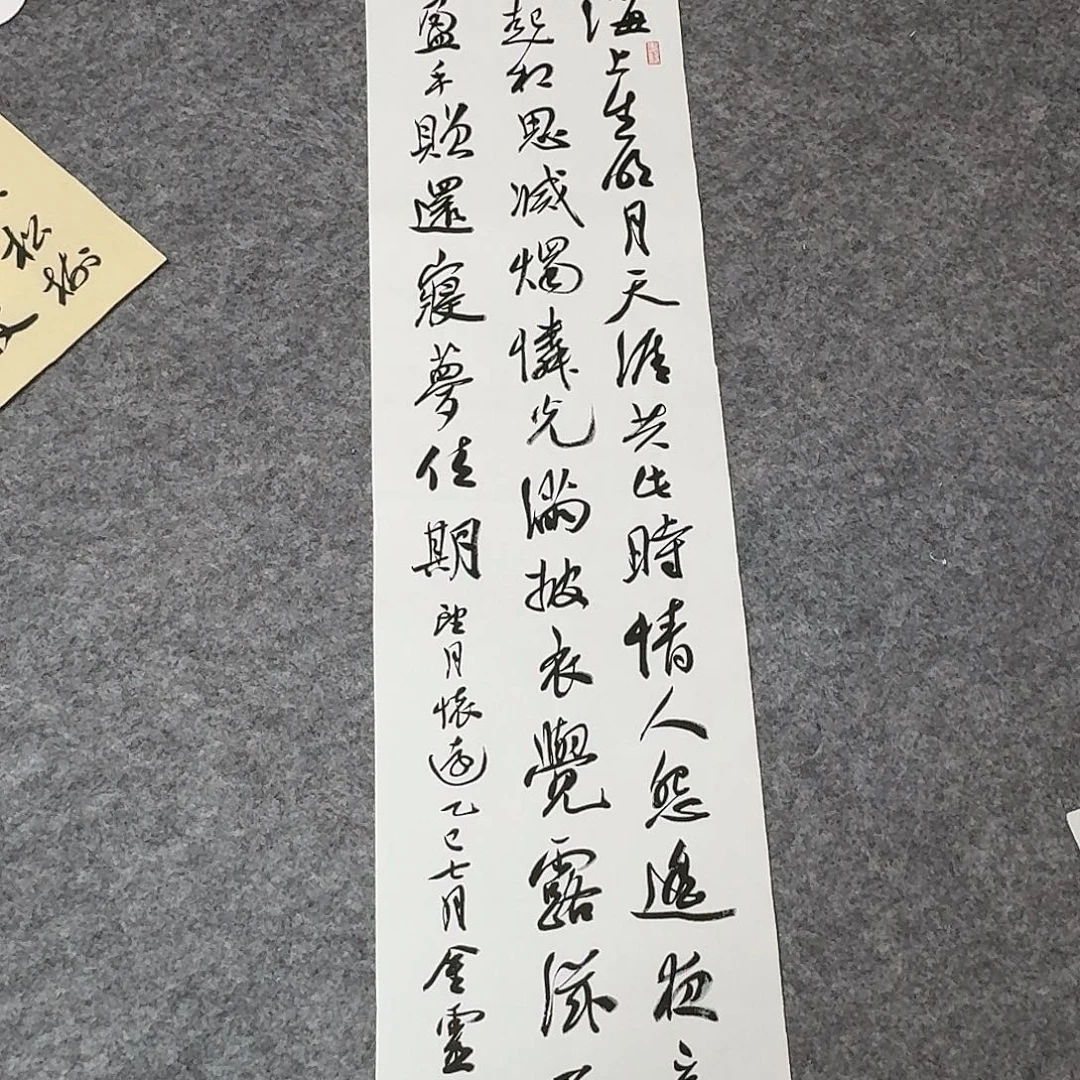 海上生明月天涯共此時情人怨遙夜
起相思滅燭憐光滿披衣覺露滋
盈手贈還寢夢佳期望月懷遠乙巳七月金靈
松